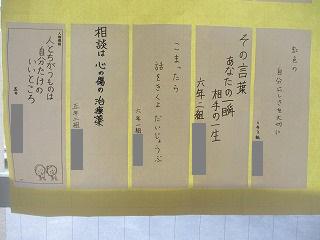 虹色の
自分らしさを大切に
その言葉
あなたの一瞬
相手の一生
六年二組
こまったら
話をきくよ だいじょうぶ
六年一組
相談は 心の傷の 治療薬
五年二組
人権標語
人とちがうものは
自分だけの
いいところ
五年